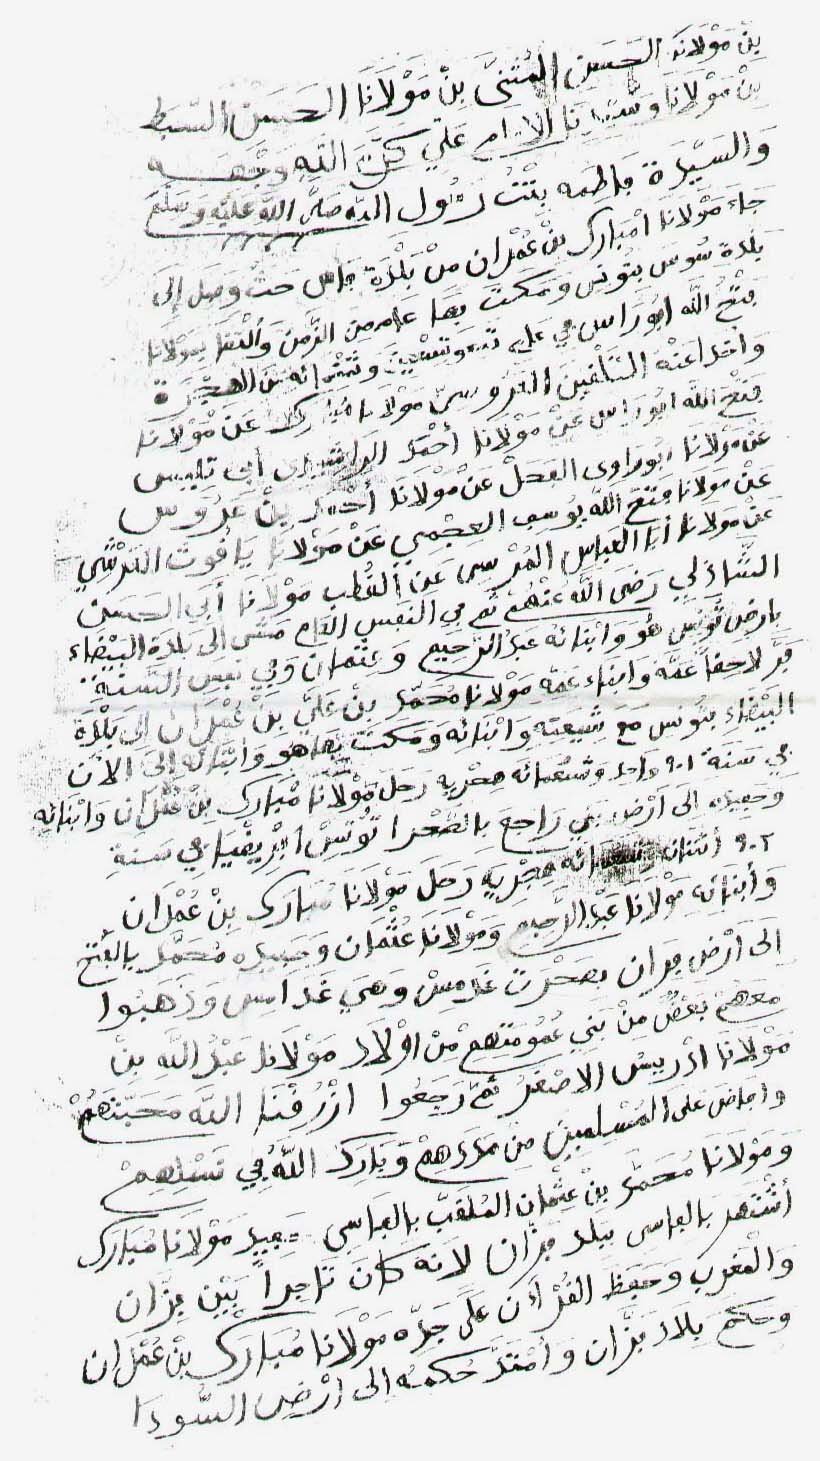 بِنْ مَوْلَانَا الحَسَنِ المُثَنَّى بِنْ مَوْلَانَا الحَسَنْ السّبط
بِنْ مَوْلَانَا وَسَيّدِنَا الامام عَلِي كَرَّمَ اللهُ وَجْهَــه
وَالسَّيِّدَة فاطِمه بِنْتُ رَسُول اللّه صَلَّ اللهُ عَلَيْهِ وَسَلَّمَ
جَاءَ مَوْلَانَا امْبَارك بِنْ عُمْرَان مِنْ بَلْدَة فاس حَتَّ وَصل إلَى
بَلدَةِ سُوسَ بتُونس وَمَكثَ بهَا عَام مِنَ الزَّمَن وَالْتَقَا بِمَوْلَانَا
فَتْحُ اللَّه ابُورَاس فِي عَام تسعَة وتسْعِينَ وَثَمْنمائه مِنَ الهِجْرَة
وَاخدا عَنْهُ التَّلْقِينَ العَرُوسِىّ مَوْلَانا مُبَارك عَنْ مَوْلَانَا
فَتْح اللَّه ابُورَاس عَنْ مَوْلَانا أحْمَد الرَاشِدِى أبى تليس
عَنْ مَوْلَانَا ابُوراوى الفَحَلْ عَنْ مَوْلَانَا أحْمَد بِنْ عَرُوس
عَنْ مَولَانا فَتْحَ اللَّه يُوسِف العجْمِي عَنْ مَوْلَانا يَاقُوت القرْشِي
عَنْ مَولَانا أبَا العبَاس المُرْسِى عَن القُطب مَوْلَانَا أبى الحَسَن
الشَّاذلِي رَضِىَ اللَّه عَنْهُمْ ثُمّ فِي النَفس العَام مَشَى إلَى بَلدَة البَيْضَاء
بارض تُونِسْ هُوَ وَابْنَائه عَبدُ الرَّحِيم وَعِثمان وَفِي نفس السَّنَة
فرَّ لاحِقاً عَمَّهُ وابناء عَمِّه مَوْلَانا مُحَمَّد بِنْ عَلِي بَنْ عُمْرَان إلَى بَلْدَة
البَيْضَاء بتُونس مَعَ شِيعتِهِ وَابْنَائه وَمكثَ بهَا هو وَابْنَائه إلَى الآن
فِي سَنَة ٩٠١ وَاحد وَتسْعمائه هجْريه رَحَل مَوْلَانَا مُبَارك بنْ عُمْرَان وَابْنَائه
وَحفِيده الى ارْض بَنِي رَاجح بالصَّحْرا تُونِسْ افْرِيقْيَا فِي سَنَةِ
٩٠٢ أثنَان وتسعمائه هِجْرِيه رحَلَ مَوْلَانَا مُبَارك بِنْ عُمْرَان
وَأبنَائه مَوْلَانَا عَبْد الرَّحِيم وَمَوْلَانَا عُثْمان وَحفِيده مُحَمَّد بالفَتْح
الَى أرْضِ فزان بصَحْرَت غدمِسْ وَهىَ غدَامِس وَذَهَبُوا
مَعَهُمْ بَعْضٌ مِنْ بَنِي عُمُومَتهِمْ مِنْ اوْلَاد مَوْلَانا عَبْدُ اللَّهِ بِنْ
مَوْلَانَا ادْرِيسْ الاصْغرْ ثُمّ رَجَعُوا ارْزُقْنَا اللَّه مَحَبّتهُمْ
وافاضَ عَلَى المُسْلِمِينَ مِنْ مَدَدِهِمْ وَبَارك اللَّهُ فِي نَسْلِهِمْ
وَمَوْلَانَا مُحَمَّد بِنْ عِثْمان المُلقبّ بالعَبَاسِي حَفِيد مَوْلَانَا مُبَارك
أشْتَهَر بَالعباسى ببلد فِزَّان لَانَه كانَ تَاجراً بَيْن فِزَّان
وَالْمَغرب وَحَفِظَ القُرْآن عَلَى جَدّه مَوْلَانَا مُبَارك بِنْ عُمْرَان
وَحكَمَ بِلَادَ فِزَّان وَأمْتَدَّ حُكمُه إلى ارْضِ السُّودَا